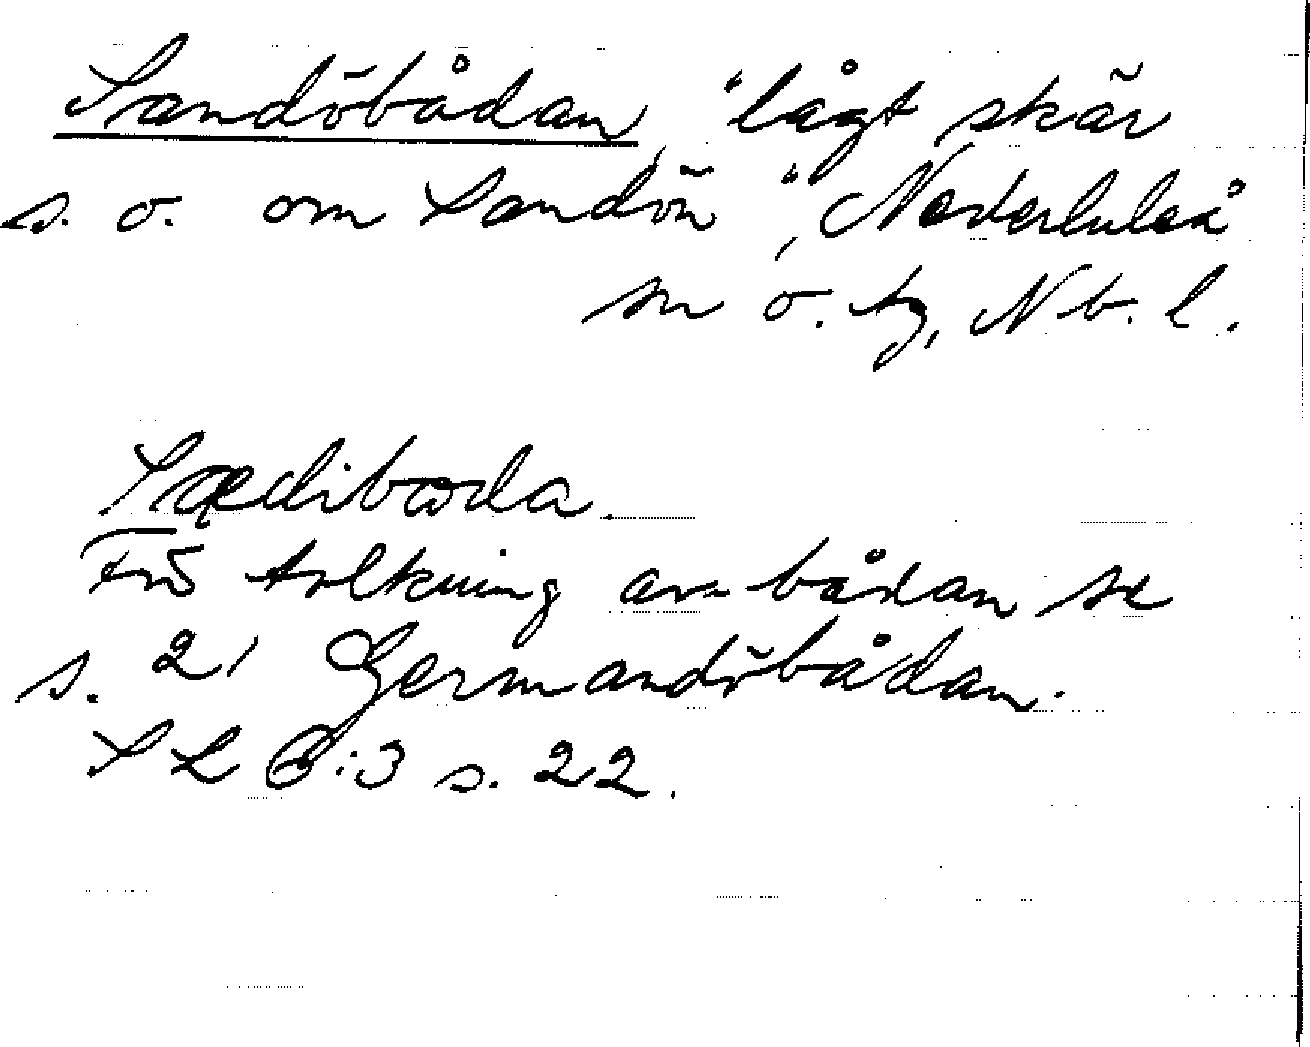 Sandöbådan, "lågt skär
s. o. om Sandön", Nederluleå
sn o. tg, Nb. l.
För tolkning av -bådan se
s. 21 Germandöbådan.
SL B:3 s. 22.